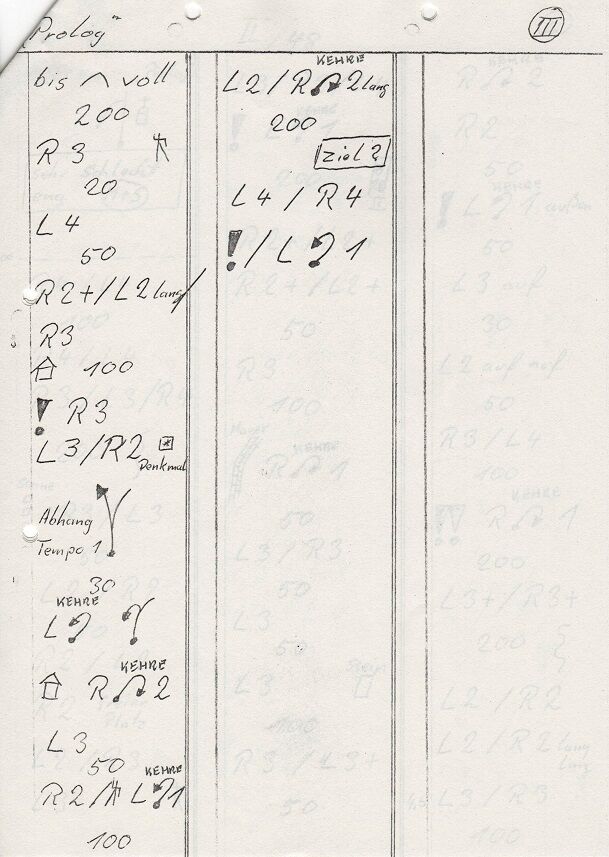 "Prolog"
III
bis ^ voll
200
R 3
20
L 4
50
R2+/L2 lang/
R3
100
! R3
L3/R2
Denkmal
Abhang
Tempo 1
30
KEHRE
L
KEHRE
R 2
L 3
50
KEHRE
R2/ L 1
100
KEHRE
L2/R 2 lang
200
Ziel?
L4/R4
!/L 1